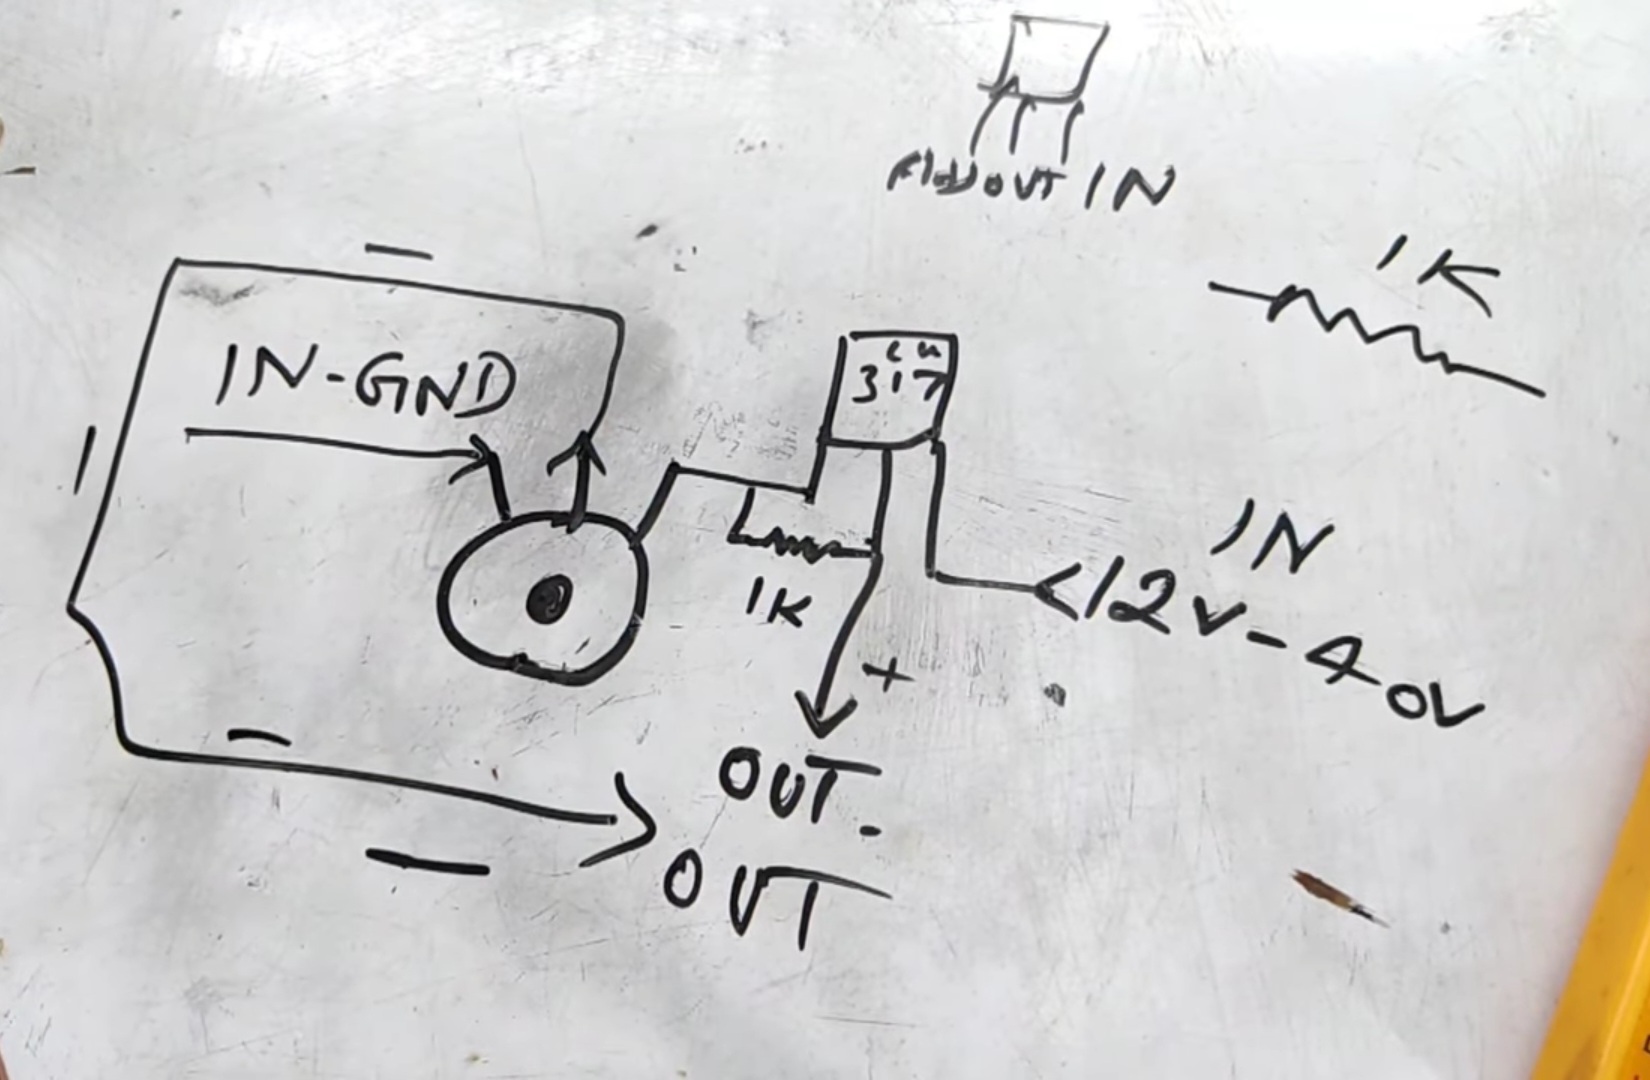 OUT IN
1K
IN-GND
LM
317
1K
IN
12V-40V
+
OUT
OUT